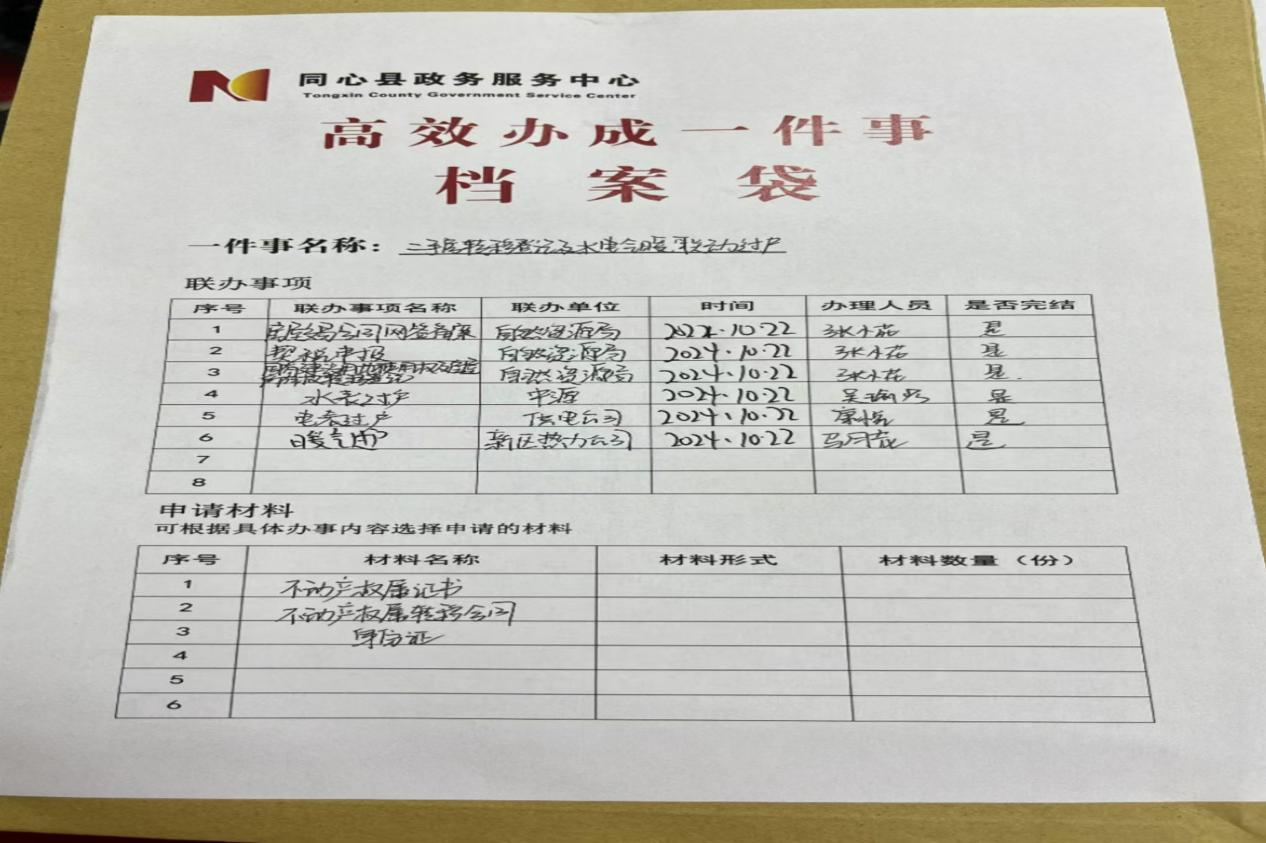 同心县政务服务中心
Tongxin County Government Service Center
高效办成一件事
档案袋
一件事名称：二手房转移登记及水电气暖联动过户
联办事项
序号 联办事项名称 联办单位 时间 办理人员 是否完结
1 房屋交易合同网签备案 自然资源局 2024.10.22 张小花 是
2 契税申报 自然资源局 2024.10.22 张小花 是
3 国有建设用地使用权及房屋 自然资源局 2024.10.22 张小花 是
4 水表过户 中源 2024.10.22 吴 是
5 电表过户 供电公司 2024.10.22 是
6 暖气过户 新区热力公司 2024.10.22 马月花 是
7
8
申请材料
可根据具体办事内容选择申请的材料
序号 材料名称 材料形式 材料数量（份）
1 不动产权属证书
2 不动产权属转移合同
3 身份证
4
5
6